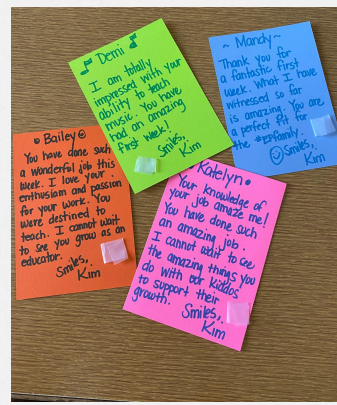 Demi
I am totally
impressed with your
ability to teach
music. You have
had an amazing
first week!
Smiles,
Kim
~ Mandy ~
Thank you for
a fantastic first
week. What I have
witnessed so far
is amazing. You are
a perfect fit for
the #EPfamily.
Smiles,
Kim
Bailey
You have done such
a wonderful job this
week. I love your
enthusiam and passion
for your work. You
were destined to
teach. I cannot wait
to see you grow as an
educator.
Smiles,
Kim
Katelyn
Your knowledge of
your job amaze me!
You have done such
an amazing job.
I cannot wait to see
the amazing things you
do with our kiddos
to support their
growth.
Smiles,
Kim